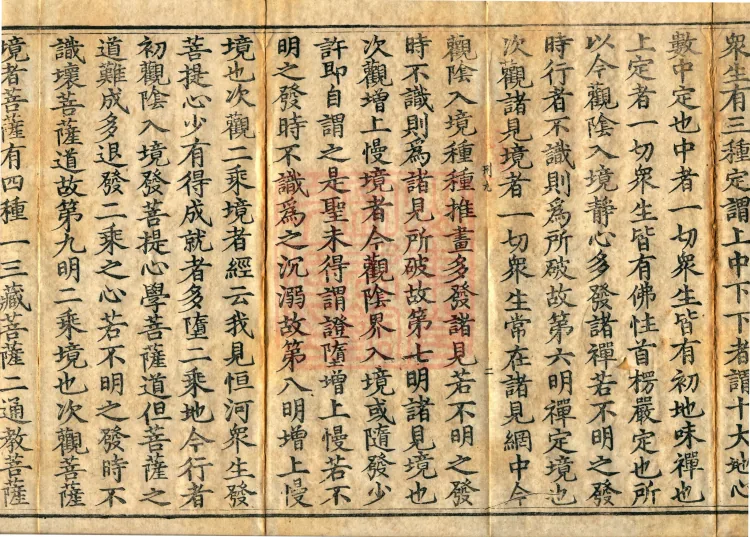 衆生有三種定謂上中下下者謂十大地心
數中定也中者一切衆生皆有初地味禪也
上定者一切衆生皆有佛性首楞嚴定也所
以今觀陰入境静心多發諸禪若不明之發
時行者不識則爲所破故第六明禪定境也
次觀諸見境者一切衆生常在諸見網中今
觀陰入境種種推畫多發諸見若不明之發
時不識則爲諸見所破故第七明諸見境也
次觀增上慢境者今觀陰界入境或隨發少
許即自謂之是聖未得謂證墮增上慢若不
明之發時不識爲之沉溺故第八明增上慢
境也次觀二乘境者經云我見恒河衆生發
菩提心少有得成就者多墮二乘地今行者
初觀陰入境發菩提心學菩薩道但菩薩之
道難成多退發二乘之心若不明之發時不
識壞菩薩道故第九明二乘境也次觀菩薩
境者菩薩有四種一三藏菩薩二通教菩薩